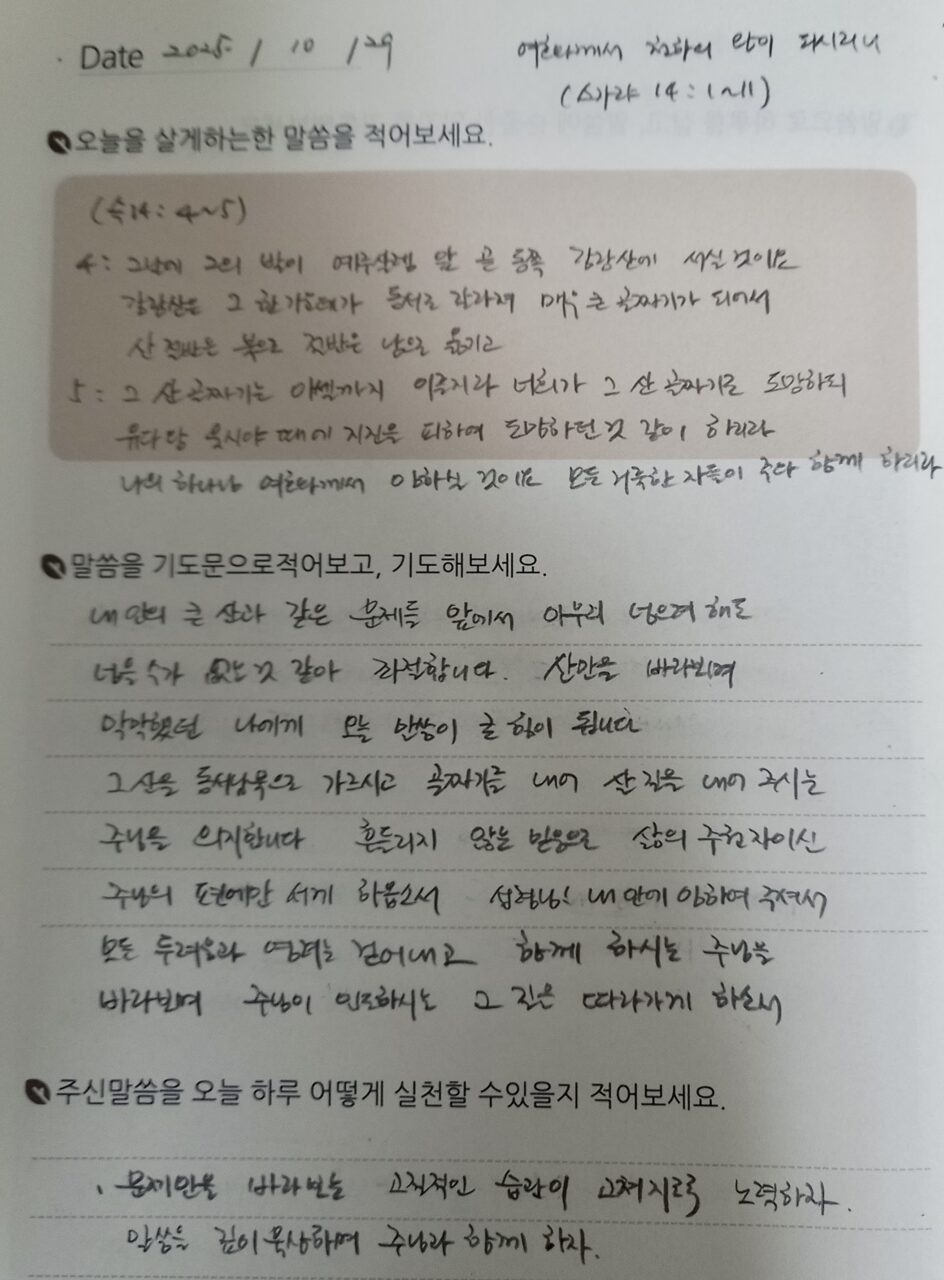 Date 2025 / 10 / 29
여호와께서 천하의 왕이 되시리니
(스가랴 14 : 1~11)
오늘을 살게하는한 말씀을 적어보세요.
(슥14 : 4~5)
4 : 그날에 그의 발이 예루살렘 앞 곧 동쪽 감람산에 서실 것이요
감람산은 그 한 가운데가 동서로 갈라져 매우 큰 골짜기가 되어서
산 절반은 북으로 절반은 남으로 옮기고
5 : 그 산 골짜기는 아셀까지 이를지라 너희가 그 산 골짜기로 도망하되
유다 왕 웃시야 때에 지진을 피하여 도망하던 것 같이 하리라
나의 하나님 여호와께서 임하실 것이요 모든 거룩한 자들이 주와 함께 하리라
말씀을 기도문으로적어보고, 기도해보세요.
내 안의 큰 산과 같은 문제들 앞에서 아무리 넘으려 해도
넘을 수가 없는 것 같아 좌절합니다. 산만을 바라보며
막막했던 나에게 오늘 말씀이 큰 힘이 됩니다
그 산을 동서남북으로 가르시고 골짜기를 내어 산 길을 내어 주시는
주님을 의지합니다 흔들리지 않는 믿음으로 삶의 주권자이신
주님의 편에만 서게 하옵소서 성령님! 내 안에 임하여 주셔서
모든 두려움과 염려는 걷어내고 함께 하시는 주님을
바라보며 주님이 인도하시는 그 길은 따라가게 하소서
주신말씀을 오늘 하루 어떻게 실천할 수있을지 적어보세요.
. 문제만을 바라보는 고질적인 습관이 고쳐지도록 노력하자.
말씀을 깊이 묵상하며 주님과 함께 하자.